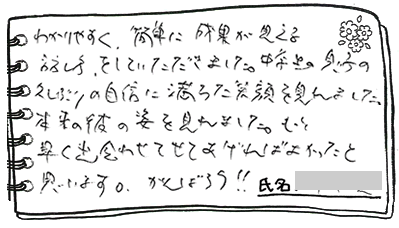 わかりやすく、簡単に成果が見える
話し方、をしていただきました。中学生の息子の
久しぶりの自信に満ちた笑顔を見れました。
本来の彼の姿を見れました。もっと
早く出会わせてせてあげればよかったと
思います。がんばろう!!氏名